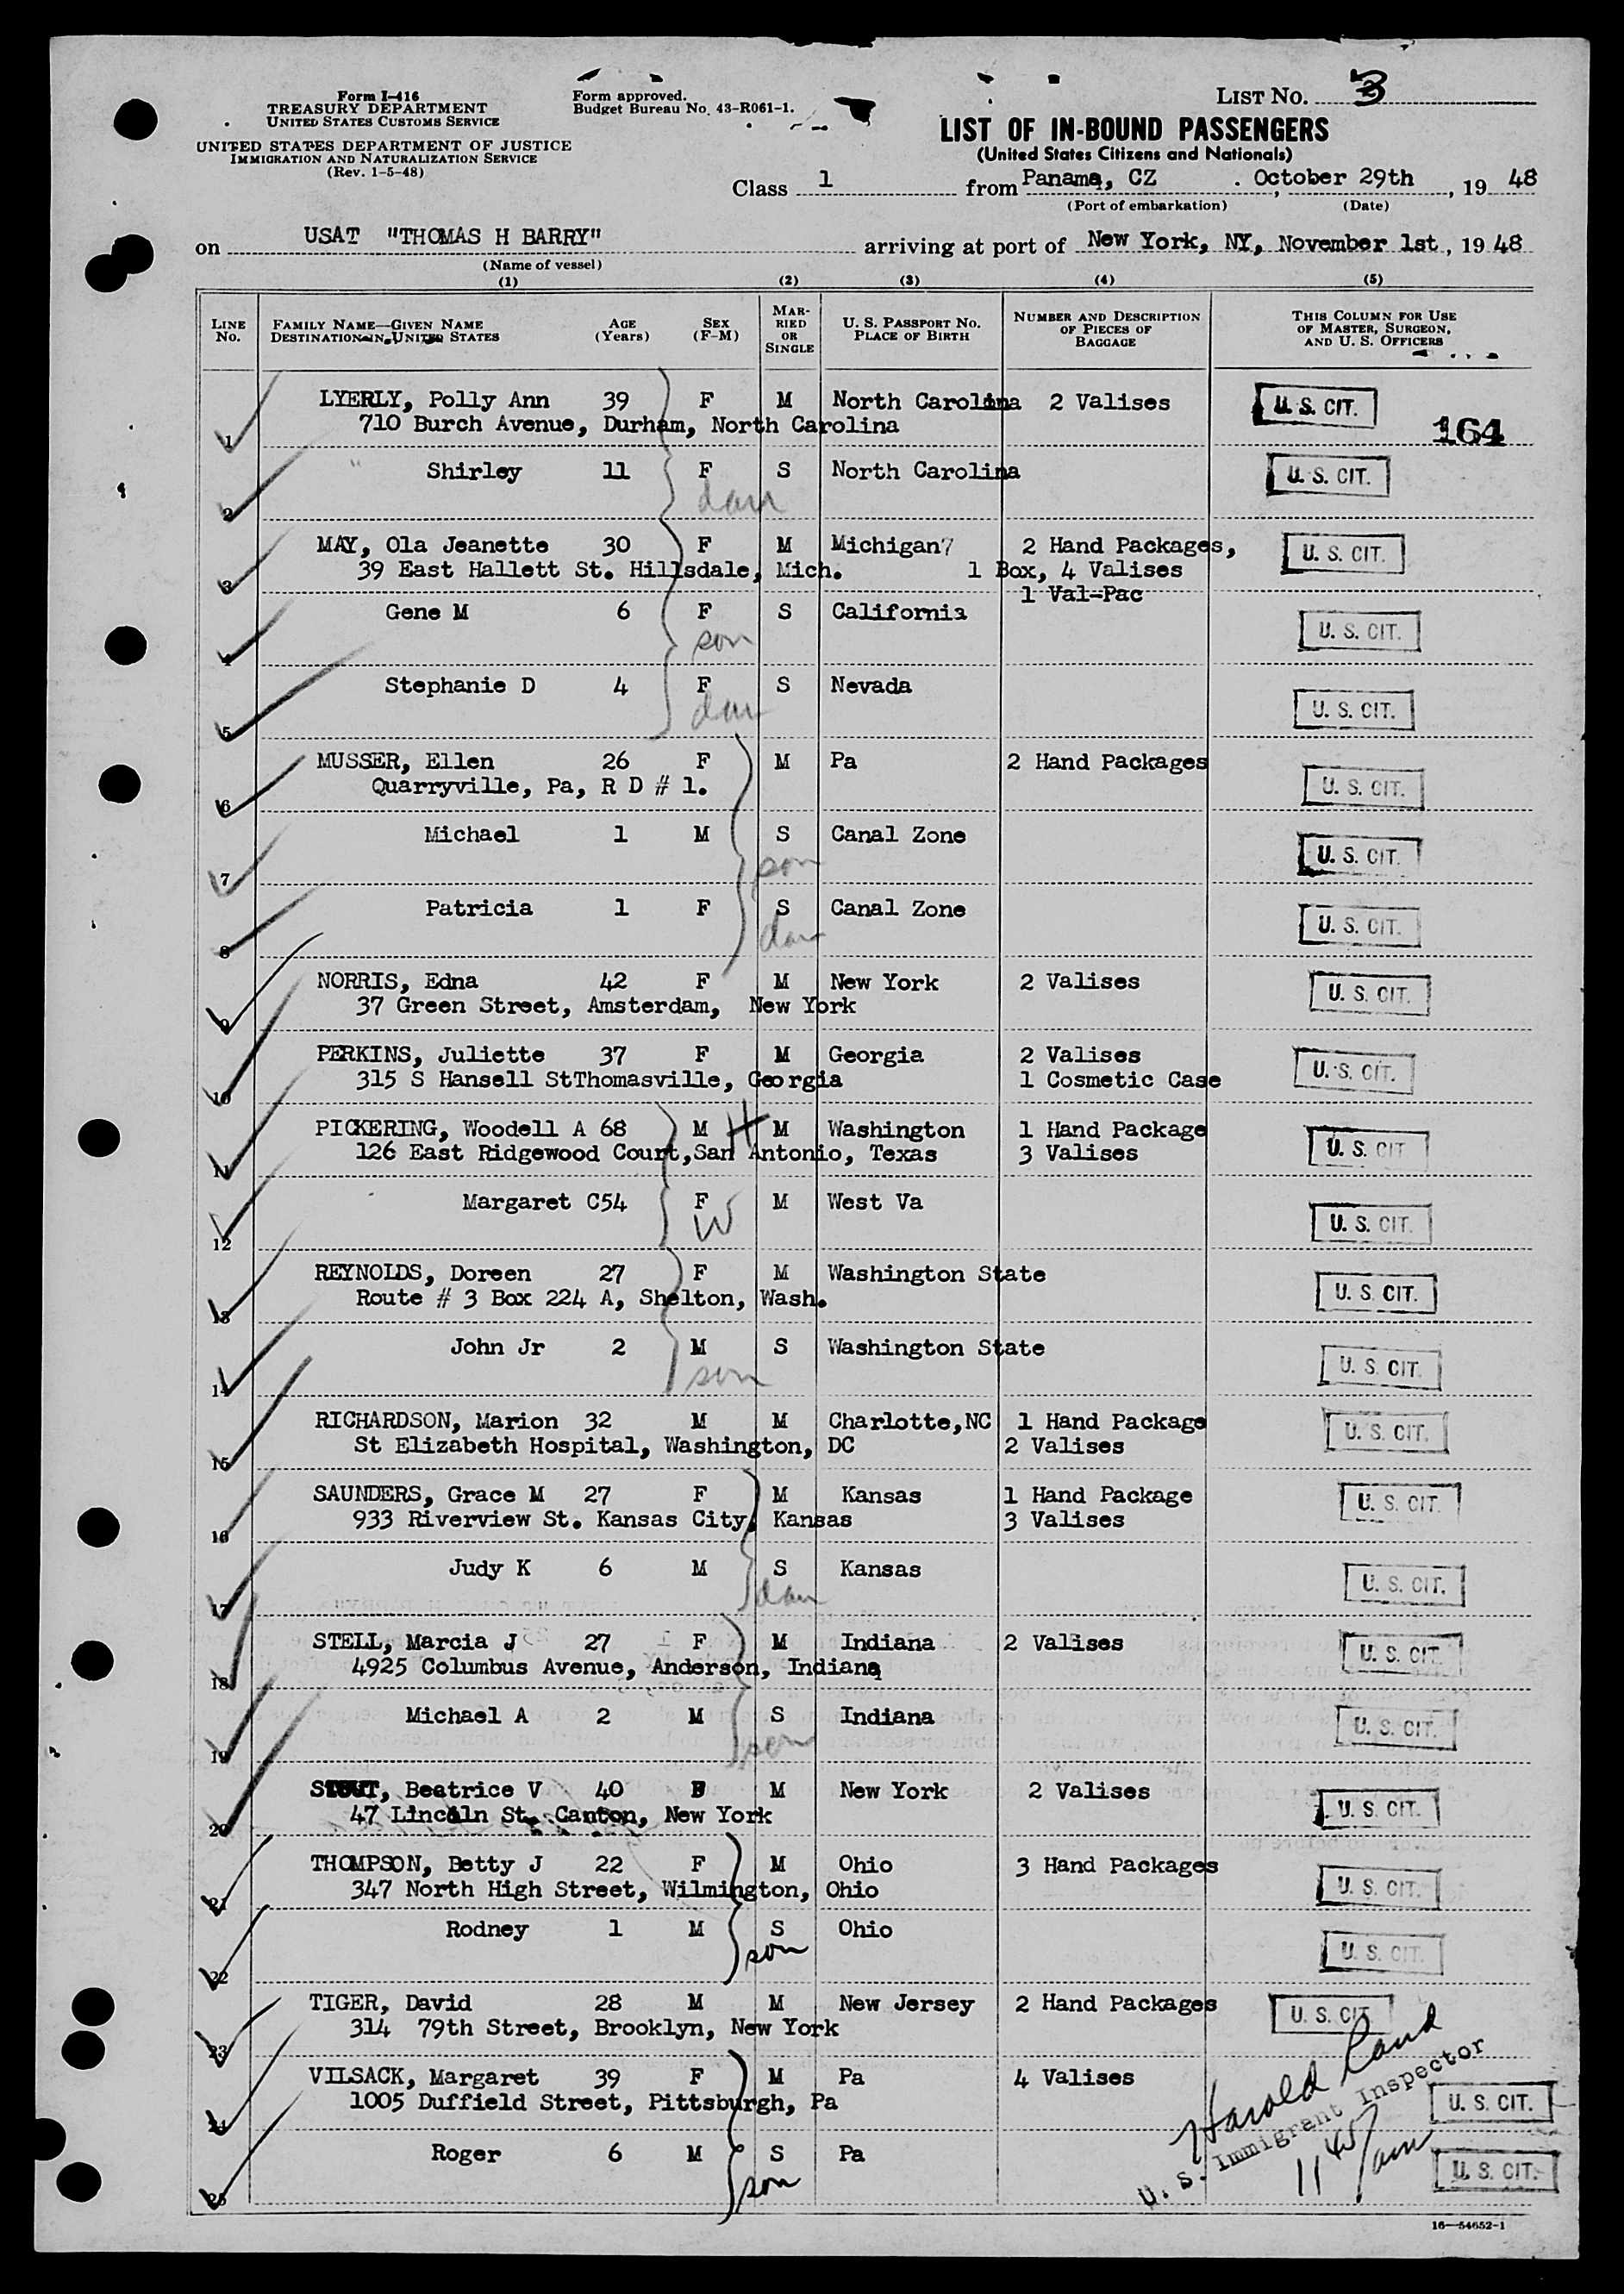 Form I-416
TREASURY DEPARTMENT
UNITED STATES CUSTOMS SERVICE
UNITED STATES DEPARTMENT OF JUSTICE
IMMIGRATION AND NATURALIZATION SERVICE
(Rev. 1-5-48)
Form approved.
Budget Bureau No. 43-R061-1.
LIST NO. 3
LIST OF IN-BOUND PASSENGERS
(United States Citizens and Nationals)
Class 1 from Panama, CZ . October 29th, 19 48
(Port of embarkation) (Date)
on USAT "THOMAS H BARRY" arriving at port of New York, NY, November 1st, 19 48
(Name of vessel)
(1) (2) (3) (4) (5)
LINE No. FAMILY NAME—GIVEN NAME DESTINATION IN UNITED STATES AGE (Years) SEX (F-M) MARRIED OR SINGLE U. S. PASSPORT NO. PLACE OF BIRTH NUMBER AND DESCRIPTION OF PIECES OF BAGGAGE THIS COLUMN FOR USE OF MASTER, SURGEON, AND U. S. OFFICERS
1 LYERLY, Polly Ann 39 F M North Carolina 2 Valises U. S. CIT.
710 Burch Avenue, Durham, North Carolina 164
2 " Shirley 11 F S North Carolina U. S. CIT.
dau
3 MAY, Ola Jeanette 30 F M Michigan7 2 Hand Packages, U. S. CIT.
39 East Hallett St. Hillsdale, Mich. 1 Box, 4 Valises
1 Val-Pac
4 Gene M 6 F S California U. S. CIT.
son
5 Stephanie D 4 F S Nevada U. S. CIT.
dau
6 MUSSER, Ellen 26 F M Pa 2 Hand Packages U. S. CIT.
Quarryville, Pa, R D # 1.
7 Michael 1 M S Canal Zone U. S. CIT.
son
8 Patricia 1 F S Canal Zone U. S. CIT.
dau
9 NORRIS, Edna 42 F M New York 2 Valises U. S. CIT.
37 Green Street, Amsterdam, New York
10 PERKINS, Juliette 37 F M Georgia 2 Valises U. S. CIT.
315 S Hansell StThomasville, Georgia 1 Cosmetic Case
11 PICKERING, Woodell A 68 M H M Washington 1 Hand Package U. S. CIT
126 East Ridgewood Court,San Antonio, Texas 3 Valises
12 Margaret C54 F M West Va U. S. CIT.
W
13 REYNOLDS, Doreen 27 F M Washington State U. S. CIT.
Route # 3 Box 224 A, Shelton, Wash.
14 John Jr 2 M S Washington State U. S. CIT.
son
15 RICHARDSON, Marion 32 M M Charlotte,NC 1 Hand Package U. S. CIT.
St Elizabeth Hospital, Washington, DC 2 Valises
16 SAUNDERS, Grace M 27 F M Kansas 1 Hand Package U. S. CIT.
933 Riverview St. Kansas City, Kansas 3 Valises
17 Judy K 6 M S Kansas U. S. CIT.
dau
18 STELL, Marcia J 27 F M Indiana 2 Valises U. S. CIT.
4925 Columbus Avenue, Anderson, Indiana
19 Michael A 2 M S Indiana U. S. CIT.
son
20 STOUT, Beatrice V 40 F M New York 2 Valises U. S. CIT.
47 Lincoln St. Canton, New York
21 THOMPSON, Betty J 22 F M Ohio 3 Hand Packages U. S. CIT.
347 North High Street, Wilmington, Ohio
22 Rodney 1 M S Ohio U. S. CIT.
son
23 TIGER, David 28 M M New Jersey 2 Hand Packages U. S. CIT.
314 79th Street, Brooklyn, New York
24 VILSACK, Margaret 39 F M Pa 4 Valises U. S. CIT.
1005 Duffield Street, Pittsburgh, Pa
25 Roger 6 M S Pa U. S. CIT.
son
Harold
U. S. Immigrant Inspector
11 45/am
16—54652-1